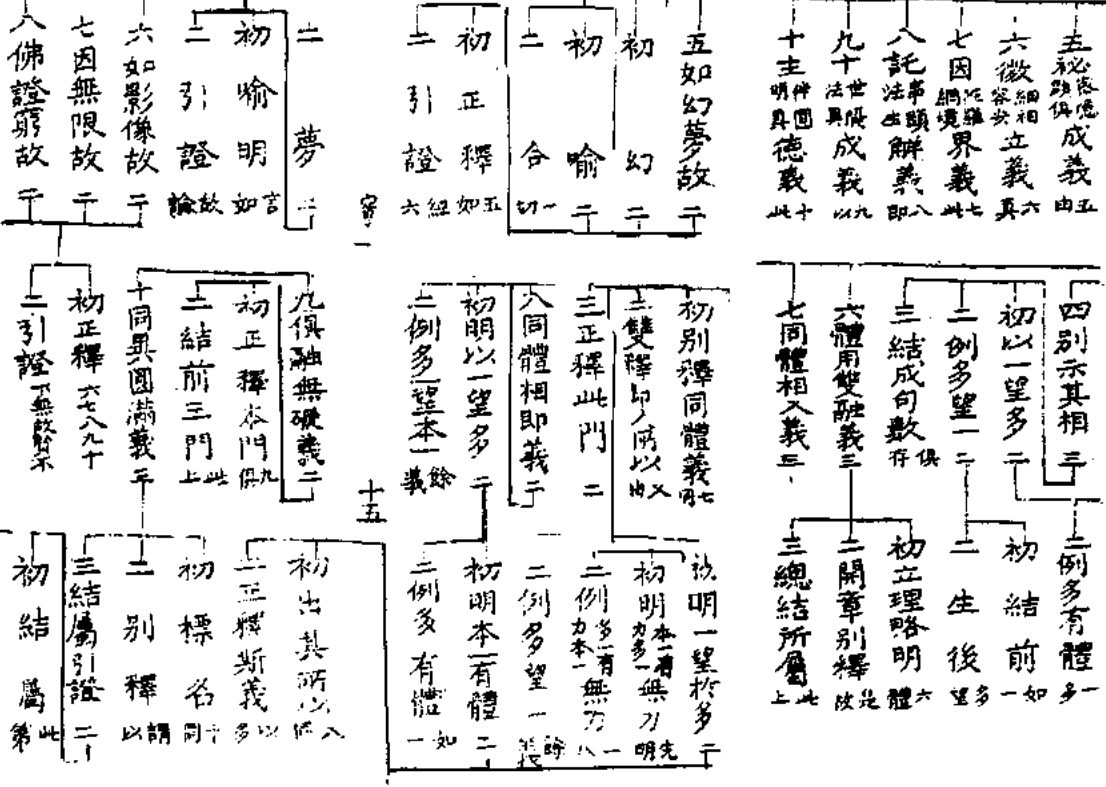 五祕密隱顯俱成義 五由
六微細相容安立義 六真
七因陀羅網境界義 七此
八託事顯法生解義 八即
九十世隔法異成義 九以
十主伴圓明具德義 十此
五如幻夢故 二
初幻 二
初喻 二
二合 一切
初正釋 五如
二引證 經六
寄一
二夢 二
初喻明 言如
二引證 故論
六如影像故 二
七因無限故 二
八佛證窮故 二
四別示其相 三
初以一望多 二
二例多望一 二
三結成句數 俱存
六體用雙融義 三
七同體相入義 三
初別釋同體義 七同
二雙釋即入所以 又由
三正釋此門 二
八同體相即義 二
初明以一望多 二
二例多望本一 餘義
十五
九俱融無礙義 二
初正釋本門 九俱
二結前三門 此上
十同異圓滿義 三
初正釋 六七八九十
二引證
二例多有體 一多
初結前 如一
二生後 多望
初立理略明 六體
二開章別釋 是故
三總結所屬 此上
初明一望於多 二
初明本一有力多一無力 先明
二例多一有力本一無力 一八
二例多望一 餘義
初明本一有體 二
二例多有體 如一
初出其所以 八
二正釋斯義 以多
初標名 十同
二別釋 謂以
三結屬引證 二
初結屬 此第